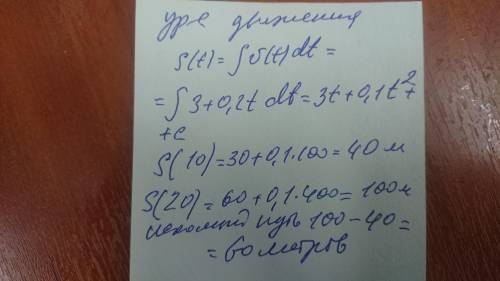 ур-е движения
S(t) = ∫ υ(t) dt =
= ∫ 3 + 0,2t dt = 3t + 0,1t² +
+ c
S(10) = 30 + 0,1·100 = 40 м
S(20) = 60 + 0,1·400 = 100 м
искомый путь 100 - 40 =
= 60 метров